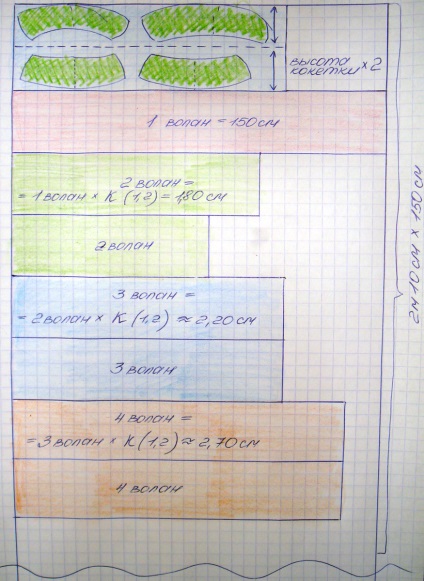 высота
кокетки × 2
1 волан = 150 см
2 волан =
= 1 волан × К (1,2) = 1,80 см
2 волан
3 волан =
= 2 волан × К (1,2) ≈ 2,20 см
3 волан
4 волан =
= 3 волан × К (1,2) ≈ 2,70 см
4 волан
2м 10 см × 150 см